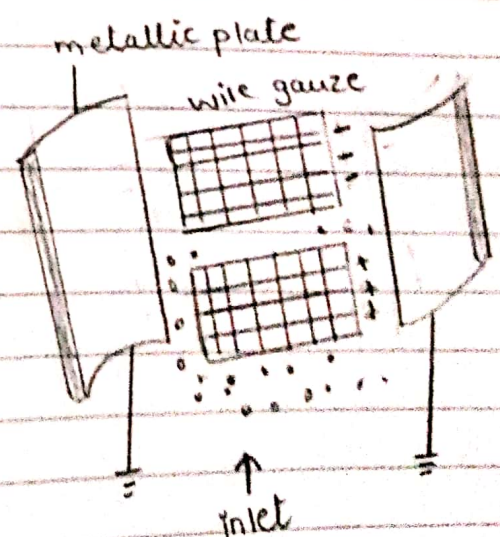 metallic plate
wire gauze
- - -
+ + +
inlet